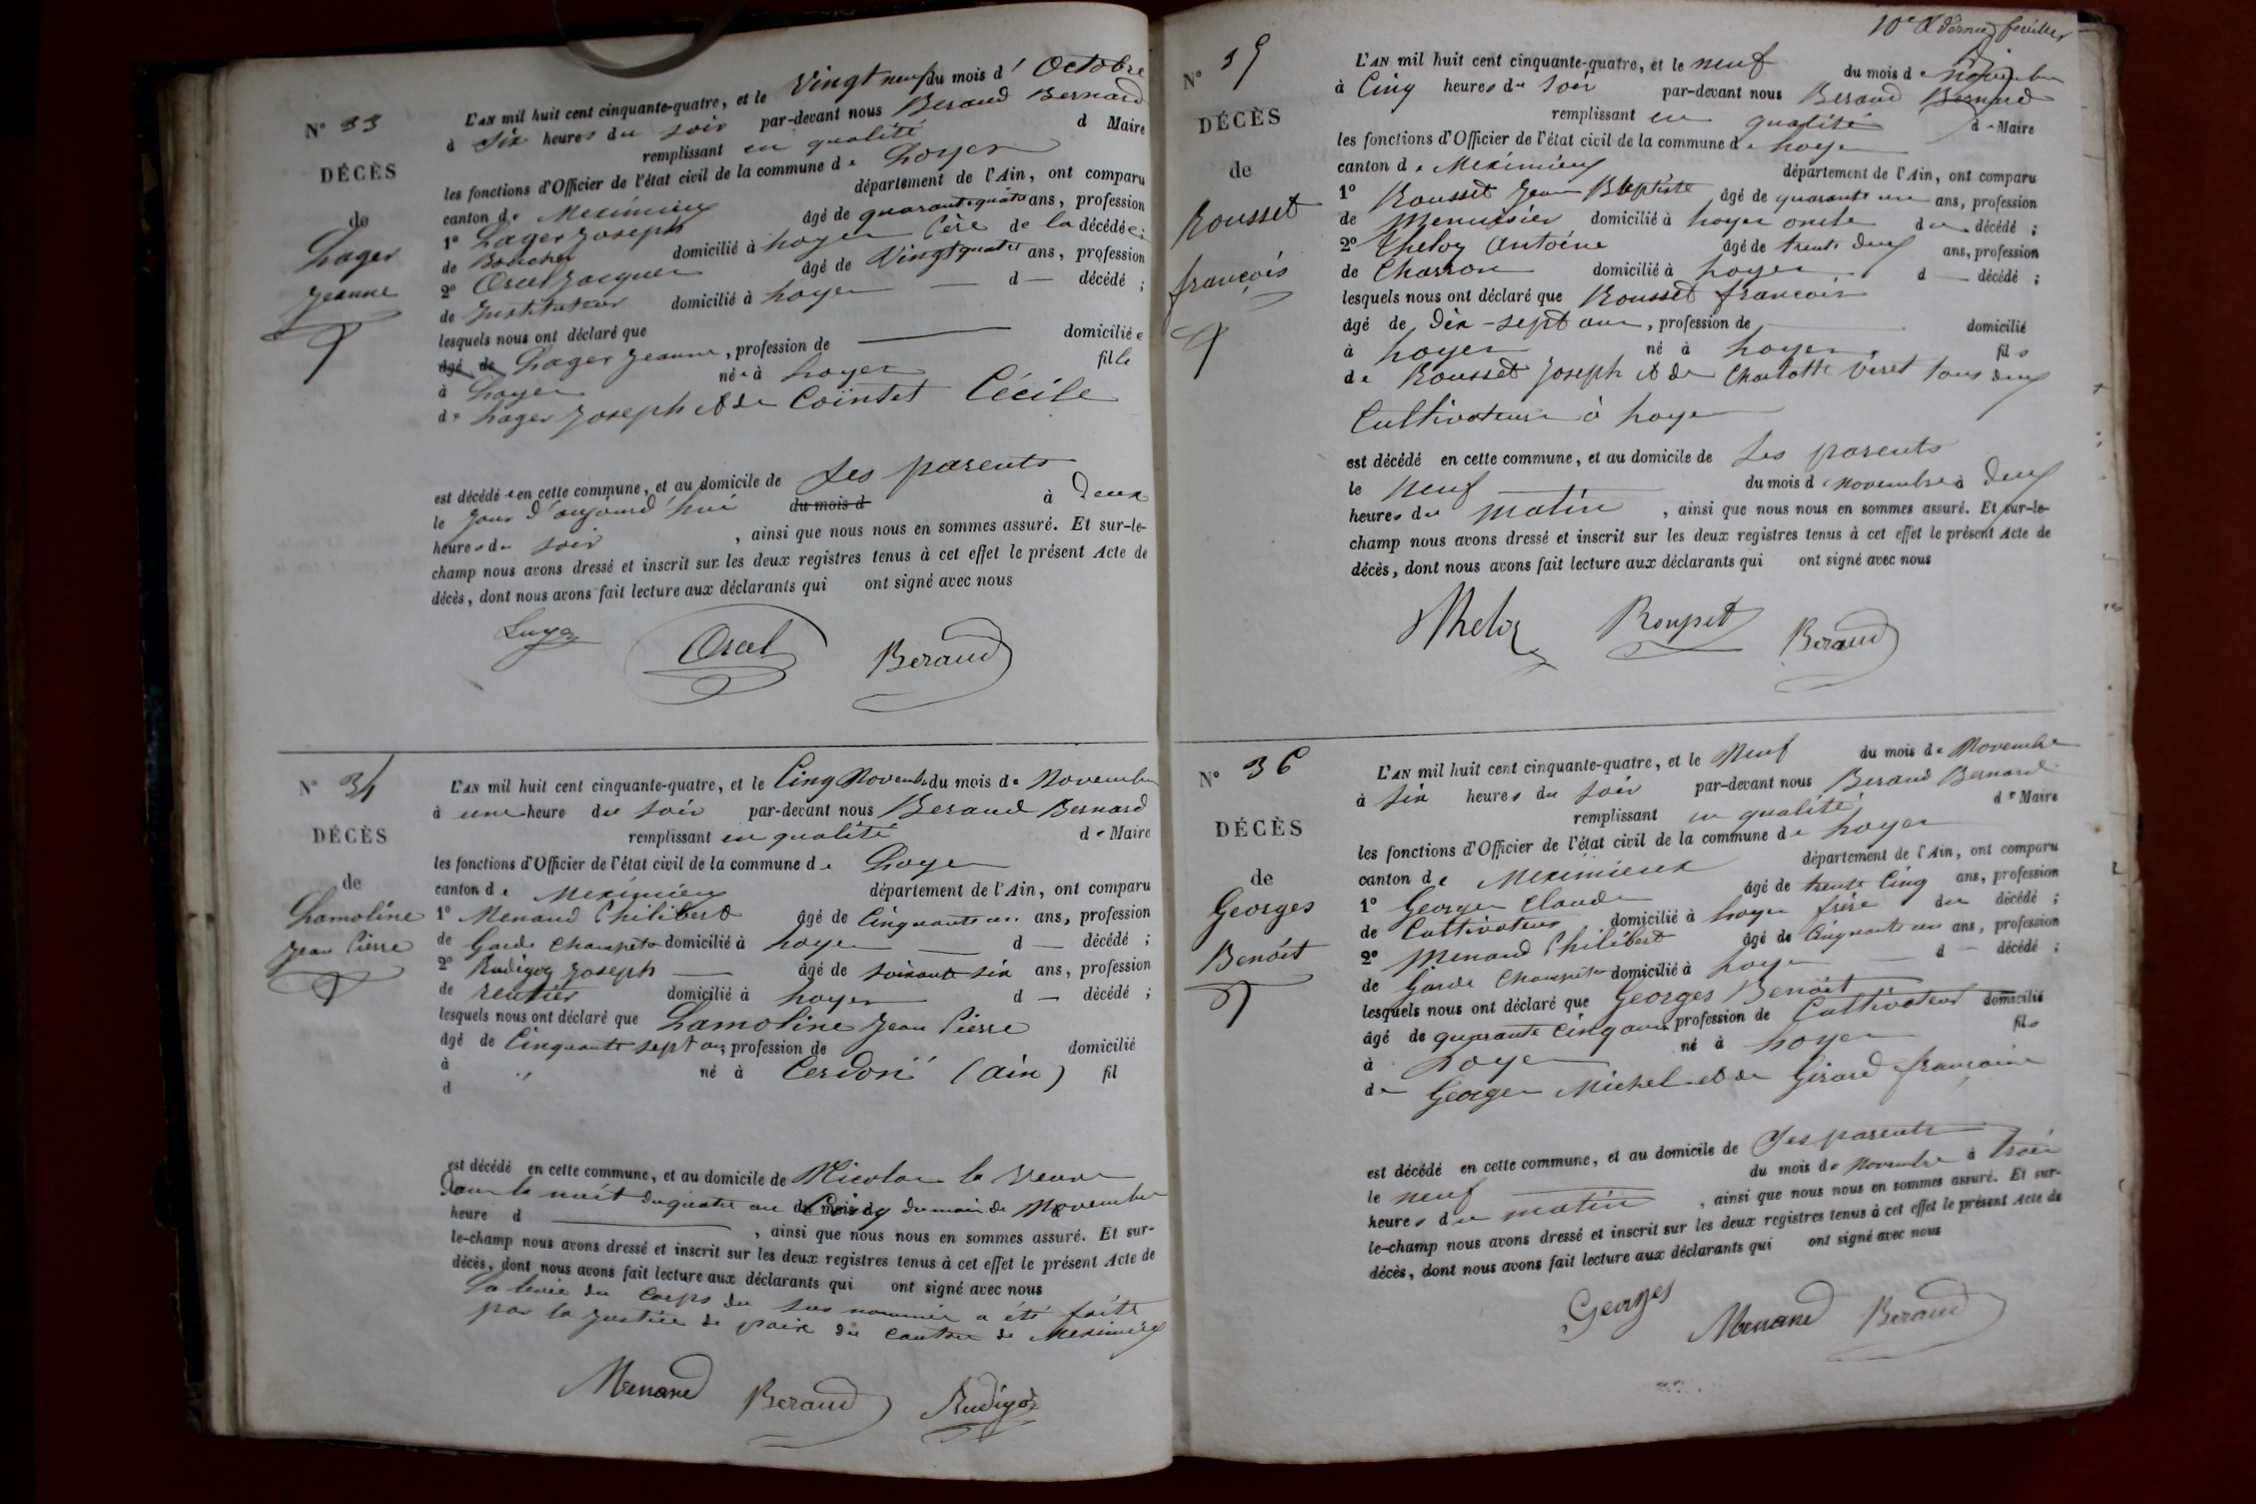 N° 33
DÉCÈS
de
Lager
Jeanne
L'AN mil huit cent cinquante-quatre, et le Vingt neuf du mois d' Octobre
à Six heures du soir par-devant nous Beraud Bernard
remplissant en qualité d Maire
les fonctions d'Officier de l'état civil de la commune de Loyes
canton de Meximieux département de l'Ain, ont comparu
1° Lager Joseph âgé de quarante quatre ans, profession
de Boucher domicilié à Loyes Père de la décédée;
2° Orcel Jacques âgé de Vingt quatre ans, profession
de Instituteur domicilié à Loyes — d — décédé ;
lesquels nous ont déclaré que
âgé de Lager Jeanne, profession de — domiciliée
à Loyes née à Loyes fille
de Lager Joseph et de Cointet Cécile
est décédée en cette commune, et au domicile de Ses parents
le jour d'aujourd'hui du mois d à deux
heures du soir , ainsi que nous nous en sommes assuré. Et sur-le-
champ nous avons dressé et inscrit sur les deux registres tenus à cet effet le présent Acte de
décès, dont nous avons fait lecture aux déclarants qui ont signé avec nous
Orcel Beraud
N° 34
DÉCÈS
de
Lamoline
Jean Pierre
L'AN mil huit cent cinquante-quatre, et le Cinq Novembre du mois de Novembre
à une heure du soir par-devant nous Beraud Bernard
remplissant en qualité de Maire
les fonctions d'Officier de l'état civil de la commune de Loyes
canton de Meximieux département de l'Ain, ont comparu
1° Menand Philibert âgé de Cinquante un ans, profession
de Garde Champêtre domicilié à Loyes — d — décédé ;
2° Rudigoz Joseph — âgé de soixante six ans, profession
de rentier domicilié à Loyes d — décédé ;
lesquels nous ont déclaré que Lamoline Jean Pierre
âgé de Cinquante sept ans, profession de domicilié
à " né à Cerdon (ain) fil
d
est décédé en cette commune, et au domicile de Nicolas la Veuve
Dans la nuit du quatre au du mois d Cinq du mois de Novembre
heure d — , ainsi que nous nous en sommes assuré. Et sur-
le-champ nous avons dressé et inscrit sur les deux registres tenus à cet effet le présent Acte de
décès, dont nous avons fait lecture aux déclarants qui ont signé avec nous
La levée du corps du sus nommé a été faite
par la justice de paix du canton de Meximieux
Menand Beraud Rudigoz
10e et dernier feuillet
N° 35
DÉCÈS
de
Rousset
françois
L'AN mil huit cent cinquante-quatre, et le neuf du mois de Novembre
à Cinq heures du soir par-devant nous Beraud Bernard
remplissant en qualité de Maire
les fonctions d'Officier de l'état civil de la commune de Loyes
canton de Meximieux département de l'Ain, ont comparu
1° Rousset Jean Baptiste âgé de quarante un ans, profession
de Menuisier domicilié à Loyes oncle du décédé ;
2° Theloz Antoine âgé de trente deux ans, profession
de Charron domicilié à Loyes d — décédé ;
lesquels nous ont déclaré que Rousset françois
âgé de dix-sept ans, profession de domicilié
à Loyes né à Loyes fils
de Rousset Joseph et de Charlotte Viret tous deux
Cultivateurs à Loyes
est décédé en cette commune, et au domicile de Ses parents
le neuf du mois de Novembre à deux
heures du matin , ainsi que nous nous en sommes assuré. Et sur-le-
champ nous avons dressé et inscrit sur les deux registres tenus à cet effet le présent Acte de
décès, dont nous avons fait lecture aux déclarants qui ont signé avec nous
Theloz Rousset Beraud
N° 36
DÉCÈS
de
Georges
Benoît
L'AN mil huit cent cinquante-quatre, et le Neuf du mois de Novembre
à Six heures du soir par-devant nous Beraud Bernard
remplissant en qualité de Maire
les fonctions d'Officier de l'état civil de la commune de Loyes
canton de Meximieux département de l'Ain, ont comparu
1° Georges Claude âgé de trente Cinq ans, profession
de Cultivateur domicilié à Loyes frère du décédé ;
2° Menand Philibert âgé de Cinquante un ans, profession
de Garde Champêtre domicilié à Loyes — d — décédé ;
lesquels nous ont déclaré que Georges Benoît
âgé de quarante Cinq ans, profession de Cultivateur domicilié
à Loyes né à Loyes fils
de Georges Michel et de Girard françoise
est décédé en cette commune, et au domicile de Ses parents
le neuf du mois de Novembre à trois
heures du matin , ainsi que nous nous en sommes assuré. Et sur-
le-champ nous avons dressé et inscrit sur les deux registres tenus à cet effet le présent Acte de
décès, dont nous avons fait lecture aux déclarants qui ont signé avec nous
Georges Menand Beraud